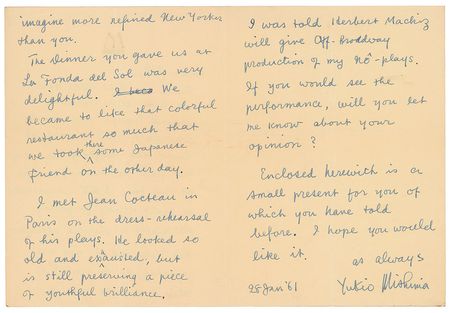 imagine more refined New Yorker
than you.
The dinner you gave us at
La Fonda del Sol was very
delightful. We
became to like that colorful
restaurant so much that
we took there some Japanese
friend on the other day.
I met Jean Cocteau in
Paris on the dress-rehearsal
of his plays. He looked so
old and exhausted, but
is still preserving a piece
of youthful brilliance.
I was told Herbert Machiz
will give Off-Broadway
production of my Nô-plays.
If you would see the
performance, will you let
me know about your
opinion?
Enclosed herewith is a
small present for you of
which you have told
before. I hope you would
like it.
as always
28 Jan '61
Yukio Mishima